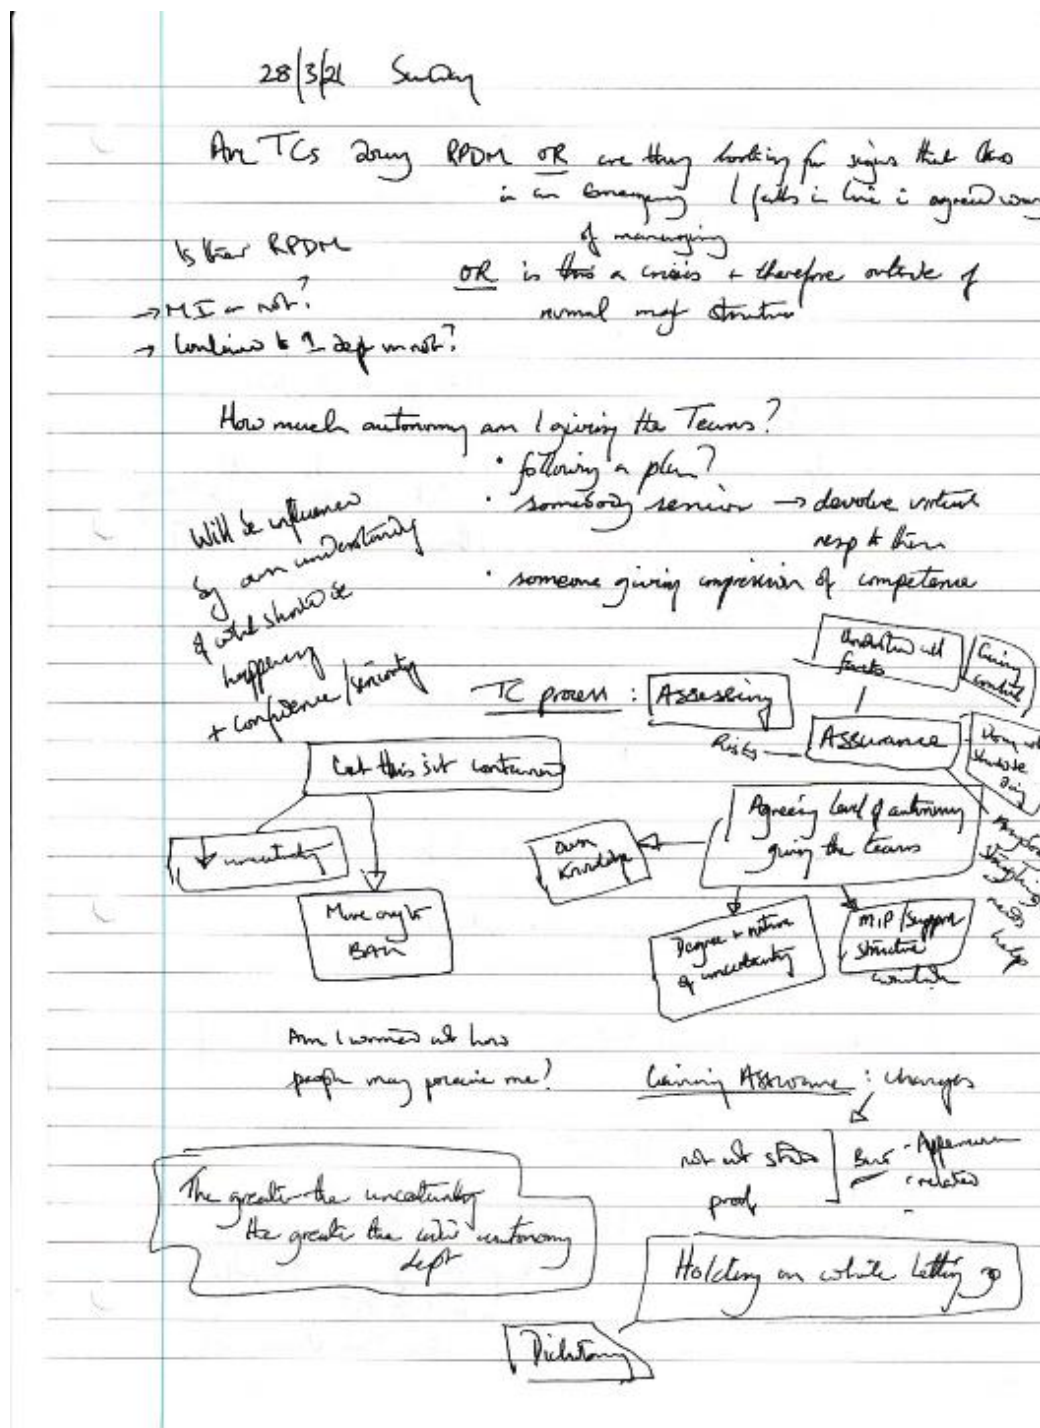 28/3/21 Sunday
Are TCs doing RPDM OR are they looking for signs that this
is an emergency & falls in line c agreed way
of managing
OR is this a crisis + therefore outside of
normal structure
Is their RPDM
→ MI or not?
→ Confined to 1 dep or not?
How much autonomy am I giving the Teams?
• following a plan?
• somebody senior → devolve virtual
resp to them
• someone giving impression of competence
Will be influenced
by own understanding
of what should be
happening
+ confidence/seniority
TC process : Assessing
facts
Gaining control
Risks
Assurance
should be
Get this sit contained
↓ uncertainty
Move on to
BAU
Agreeing level of autonomy
giving the teams
own
knowledge
Degree + nature
of uncertainty
MIP/Support
structure
needs
help
Am I worried abt how
people may perceive me?
Gaining Assurance : changes
proof
related
The greater the uncertainty
the greater the autonomy
dept
Holding on while letting go
Dichotomy